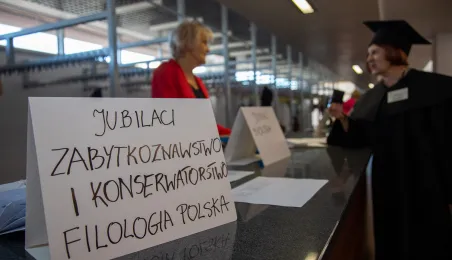 JUBILACI
ZABYTKOZNAWSTWO
I KONSERWATORSTWO
FILOLOGIA POLSKA